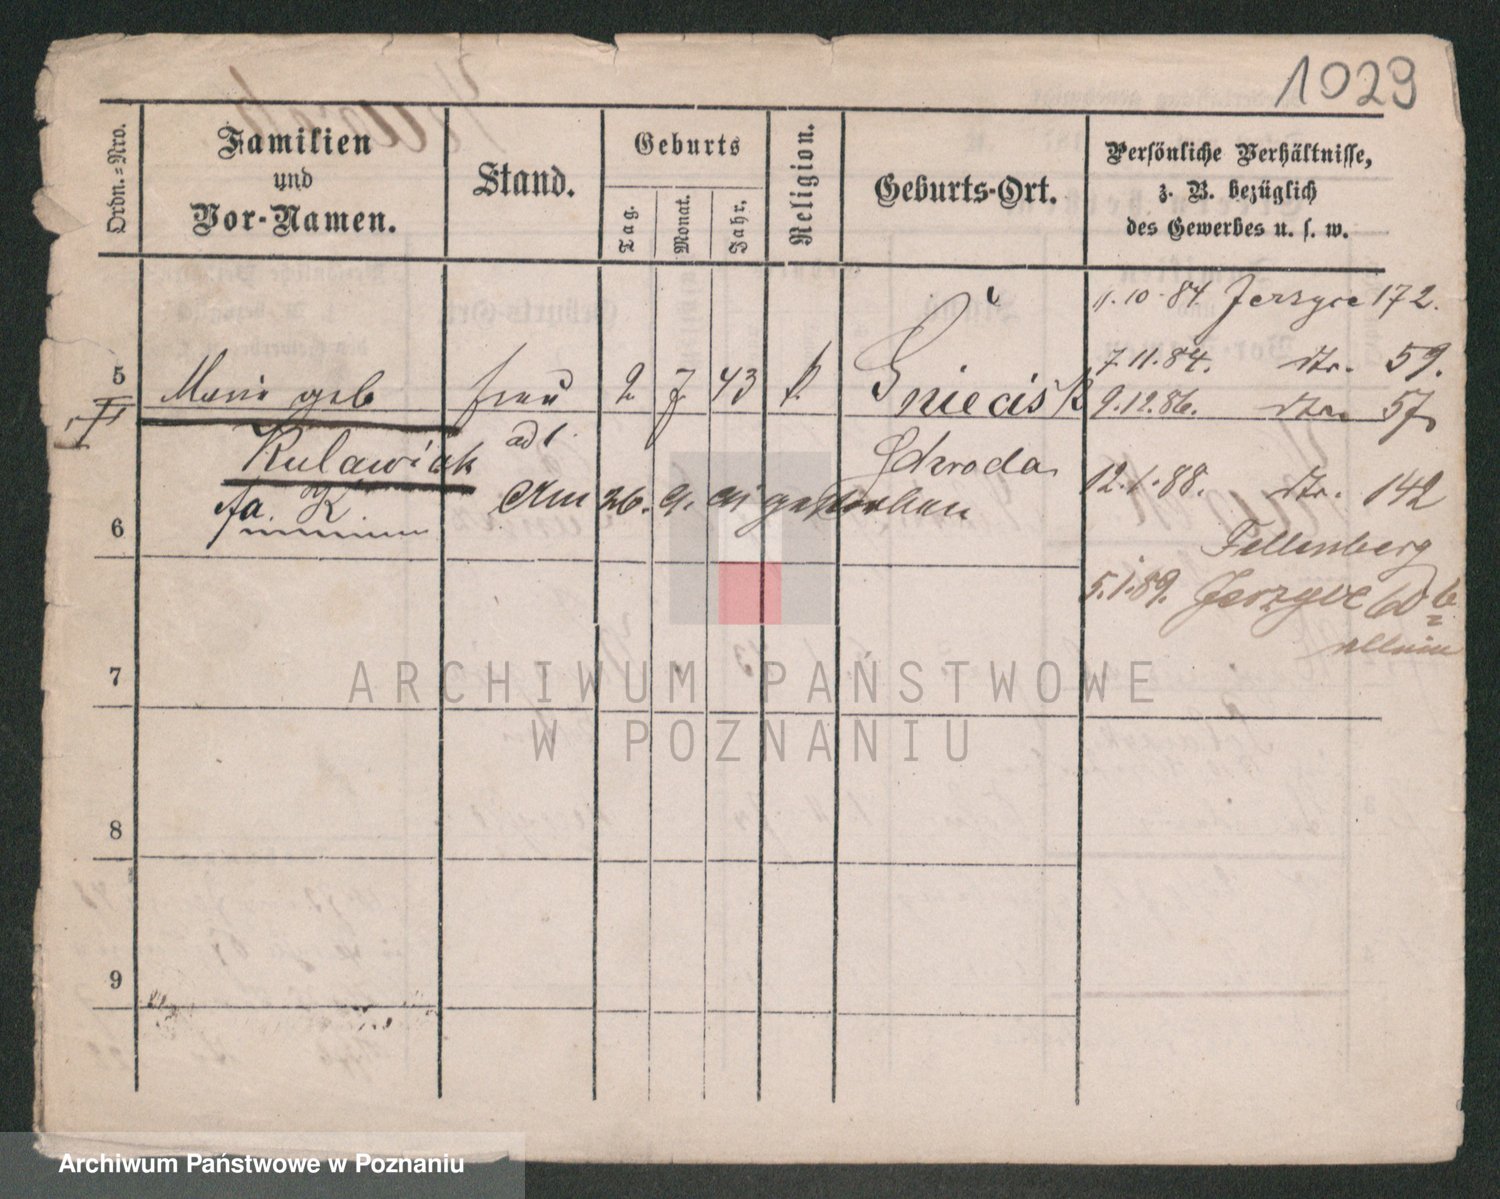 1029
Ordn.=Nro.
Familien
und
Vor-Namen.
Stand.
Geburts
Tag.
Monat.
Jahr.
Religion.
Geburts-Ort.
Persönliche Verhältnisse,
z. B. bezüglich
des Gewerbes u. s. w.
11.10.84. Jerzyce 172.
7.11.84. dto. 59.
5 Marie geb frau 2 7 43 k. Gniecisk 9.12.86. dto. 57
Kulawiak Schroda
12.1.88. dto. 142
fa. K. Am 26. 9. 91 gestorben
6
Fellenberg
5.1.89. Jerzyce
7
8
9
ARCHIWUM PAŃSTWOWE
W POZNANIU
Archiwum Państwowe w Poznaniu